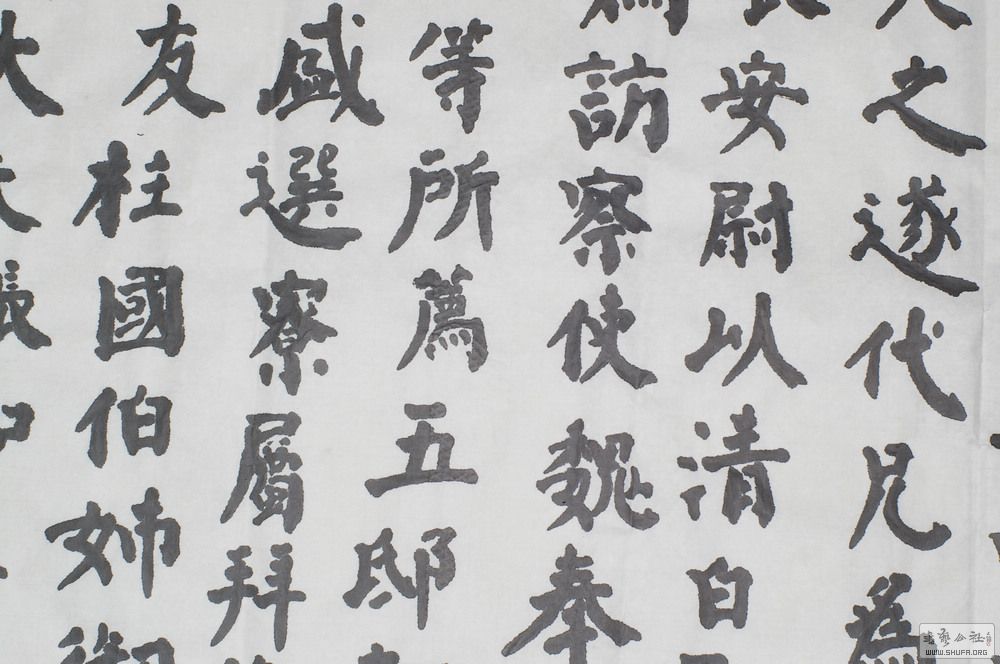 之遂代兄為
長安尉以清白
訪察使魏奉
等所薦五邸
盛選寮屬拜
友柱國伯姊御
大
張
書藝公社
WWW.SHUFA.ORG